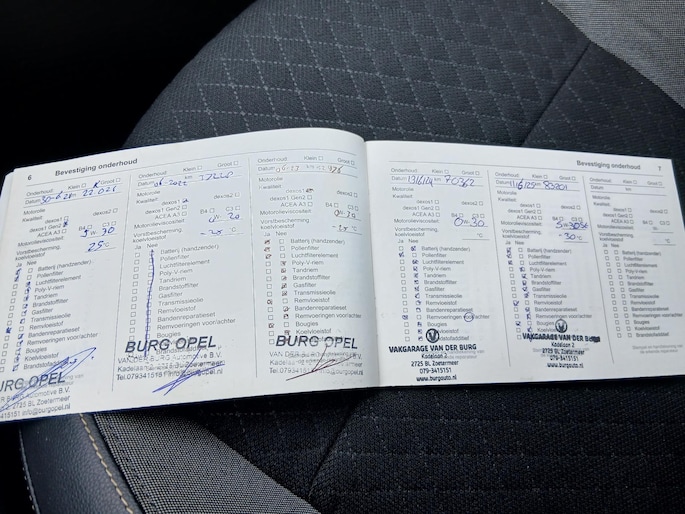 6 Bevestiging onderhoud
Onderhoud: Klein Groot
Datum km 22.028
Motorolie
Kwaliteit: dexos2
dexos1 Gen2
ACEA A3 B4
Motorolieviscositeit: 5W-30
Vorstbescherming
koelvloeistof 25°C
Ja Nee
Batterij (handzender)
Pollenfilter
Luchtfilterelement
Poly-V-riem
Tandriem
Brandstoffilter
Gasfilter
Transmissieolie
Remvloeistof
Bandenreparatieset
Remvoeringen voor/achter
Bougies
Koelvloeistof
URG OPEL
2725 BL Zoetermeer
info@burgopel.nl
Onderhoud: Klein Groot
Datum 06-2022 km
Motorolie
Kwaliteit: dexos2
dexos1 Gen2
ACEA A3 B4 C3
Motorolieviscositeit:
Vorstbescherming
koelvloeistof °C
Ja Nee
Batterij (handzender)
Pollenfilter
Luchtfilterelement
Poly-V-riem
Tandriem
Brandstoffilter
Gasfilter
Transmissieolie
Remvloeistof
Bandenreparatieset
Remvoeringen voor/achter
Bougies
BURG OPEL
Tel.0793415151 info@burgopel.nl
Onderhoud: Klein Groot
Datum km
Motorolie
Kwaliteit: dexos2
dexos1 Gen2
ACEA A3 B4 C3
Motorolieviscositeit:
Vorstbescherming
koelvloeistof °C
Ja Nee
Batterij (handzender)
Pollenfilter
Luchtfilterelement
Poly-V-riem
Tandriem
Brandstoffilter
Gasfilter
Transmissieolie
Remvloeistof
Bandenreparatieset
Remvoeringen voor/achter
Bougies
BURG OPEL
2725 BL Zoetermeer
Tel.0793415151 info@burgopel.nl
Bevestiging onderhoud 7
Onderhoud: Klein Groot
Datum 13/6/24 km 70362
Motorolie
Kwaliteit: dexos2
dexos1 Gen2
ACEA A3 B4 C3
Motorolieviscositeit: 0W-30
Vorstbescherming
koelvloeistof °C
Ja Nee
Batterij (handzender)
Pollenfilter
Luchtfilterelement
Poly-V-riem
Tandriem
Brandstoffilter
Gasfilter
Transmissieolie
Remvloeistof
Bandenreparatieset
Remvoeringen voor/achter
Bougies
Koelvloeistof
VAKGARAGE VAN DER BURG
Kadelaan 2
2725 BL Zoetermeer
079-3415151
www.burgauto.nl
Onderhoud: Klein Groot
Datum km
Motorolie
Kwaliteit: dexos2
dexos1 Gen2
ACEA A3 B4 C3
Motorolieviscositeit:
Vorstbescherming
koelvloeistof -30 °C
Ja Nee
Batterij (handzender)
Pollenfilter
Luchtfilterelement
Poly-V-riem
Tandriem
Brandstoffilter
Gasfilter
Transmissieolie
Remvloeistof
Bandenreparatieset
Remvoeringen voor/achter
Bougies
Koelvloeistof
VAKGARAGE VAN DER BURG
Kadelaan 2
2725 BL Zoetermeer
079-3415151
www.burgauto.nl
Onderhoud: Klein Groot
Datum km
Motorolie
Kwaliteit: dexos2
dexos1 Gen2
ACEA A3 B4 C3
Motorolieviscositeit:
Vorstbescherming
koelvloeistof °C
Ja Nee
Batterij (handzender)
Pollenfilter
Luchtfilterelement
Poly-V-riem
Tandriem
Brandstoffilter
Gasfilter
Transmissieolie
Remvloeistof
Bandenreparatieset
Remvoeringen voor/achter
Bougies
Koelvloeistof